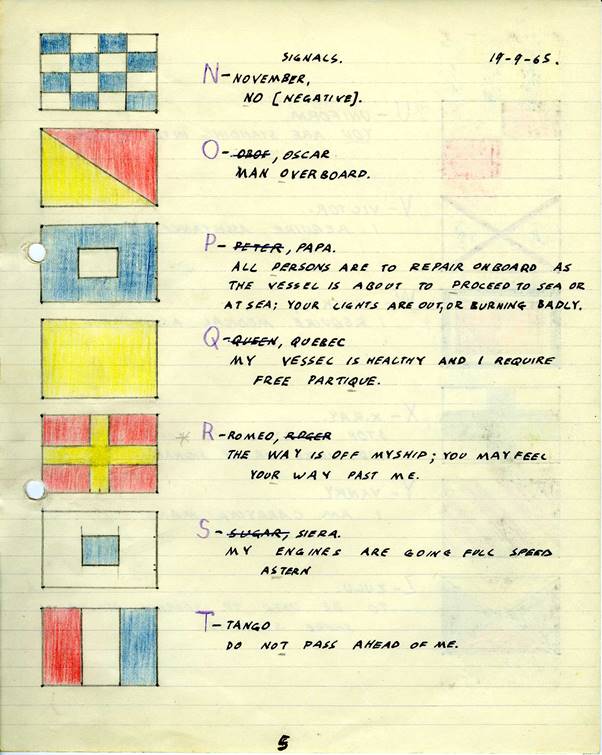 SIGNALS. 19-9-65.
N - NOVEMBER,
NO [NEGATIVE].
O - OBOE, OSCAR
MAN OVERBOARD.
P - PETER, PAPA.
ALL PERSONS ARE TO REPAIR ONBOARD AS
THE VESSEL IS ABOUT TO PROCEED TO SEA OR
AT SEA; YOUR LIGHTS ARE OUT, OR BURNING BADLY.
Q - QUEEN, QUEBEC
MY VESSEL IS HEALTHY AND I REQUIRE
FREE PARTIQUE.
* R - ROMEO, ROGER
THE WAY IS OFF MY SHIP; YOU MAY FEEL
YOUR WAY PAST ME.
S - SUGAR, SIERA.
MY ENGINES ARE GOING FULL SPEED
ASTERN
T - TANGO
DO NOT PASS AHEAD OF ME.
5